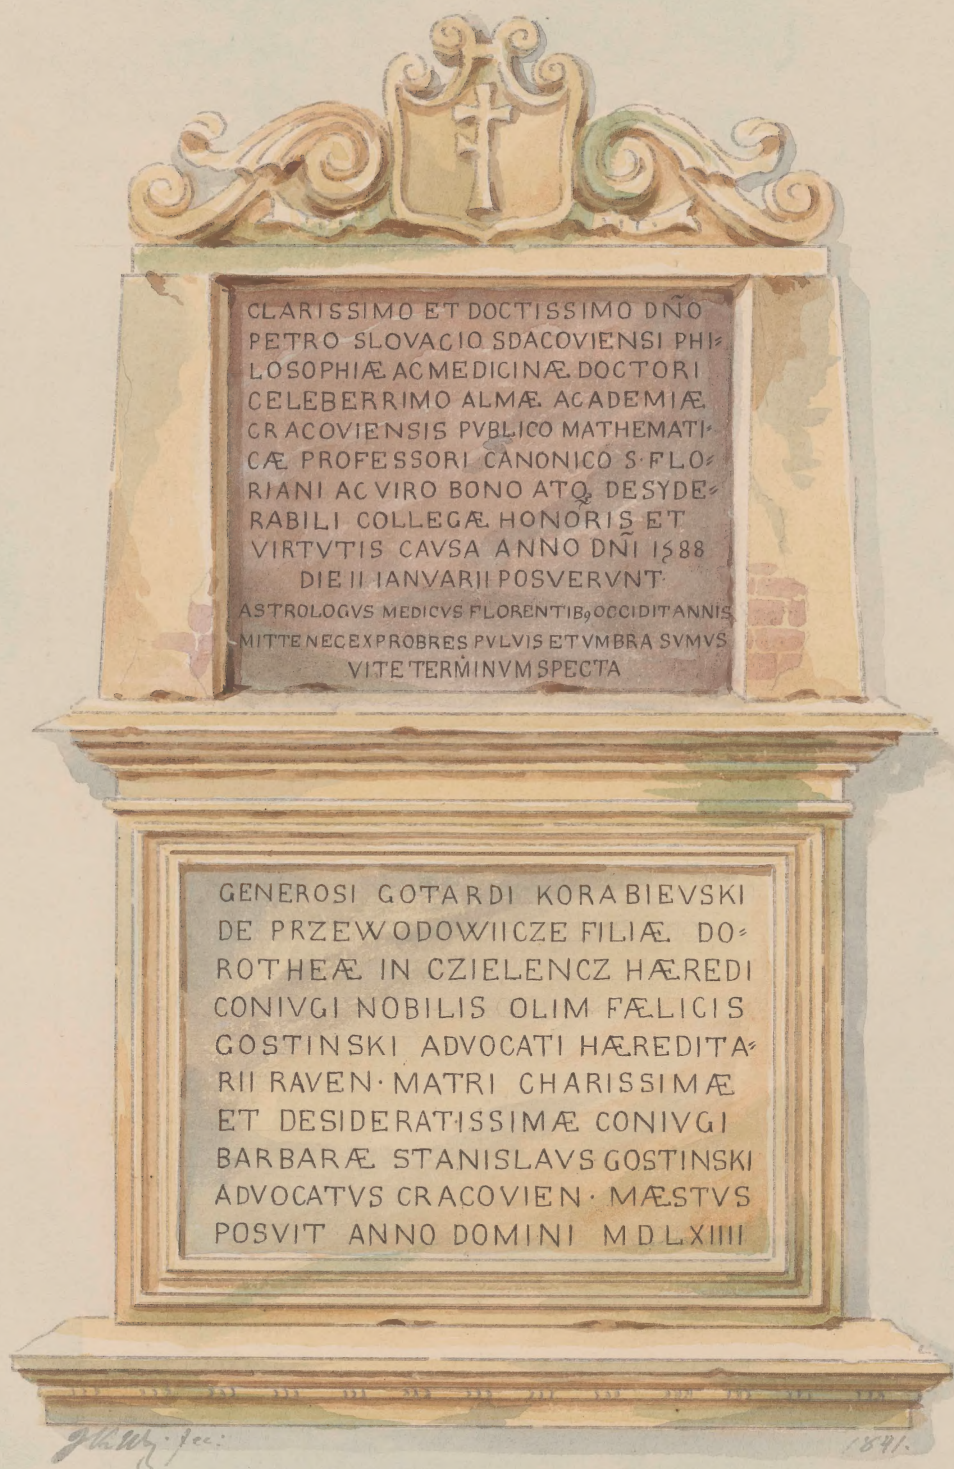 CLARISSIMO ET DOCTISSIMO DÑO
PETRO SLOVACIO SDACOVIENSI PHI⸗
LOSOPHIÆ AC MEDICINÆ DOCTORI
CELEBERRIMO ALMÆ ACADEMIÆ
CRACOVIENSIS PVBLICO MATHEMATI⸗
CÆ PROFESSORI CANONICO S·FLO⸗
RIANI AC VIRO BONO ATQ DESYDE⸗
RABILI COLLEGÆ HONORIS ET
VIRTVTIS CAVSA ANNO DÑI 1588
DIE II IANVARII POSVERVNT·
ASTROLOGVS MEDICVS FLORENTIB9 OCCIDIT ANNIS
MITTE NEC EXPROBRES PVLVIS ET VMBRA SVMVS
VITE TERMINVM SPECTA
GENEROSI GOTARDI KORABIEVSKI
DE PRZEWODOWIICZE FILIÆ DO⸗
ROTHEÆ IN CZIELENCZ HÆREDI
CONIVGI NOBILIS OLIM FÆLICIS
GOSTINSKI ADVOCATI HÆREDITA⸗
RII RAVEN· MATRI CHARISSIMÆ
ET DESIDERATISSIMÆ CONIVGI
BARBARÆ STANISLAVS GOSTINSKI
ADVOCATVS CRACOVIEN· MÆSTVS
POSVIT ANNO DOMINI MDLXIIII
fec: